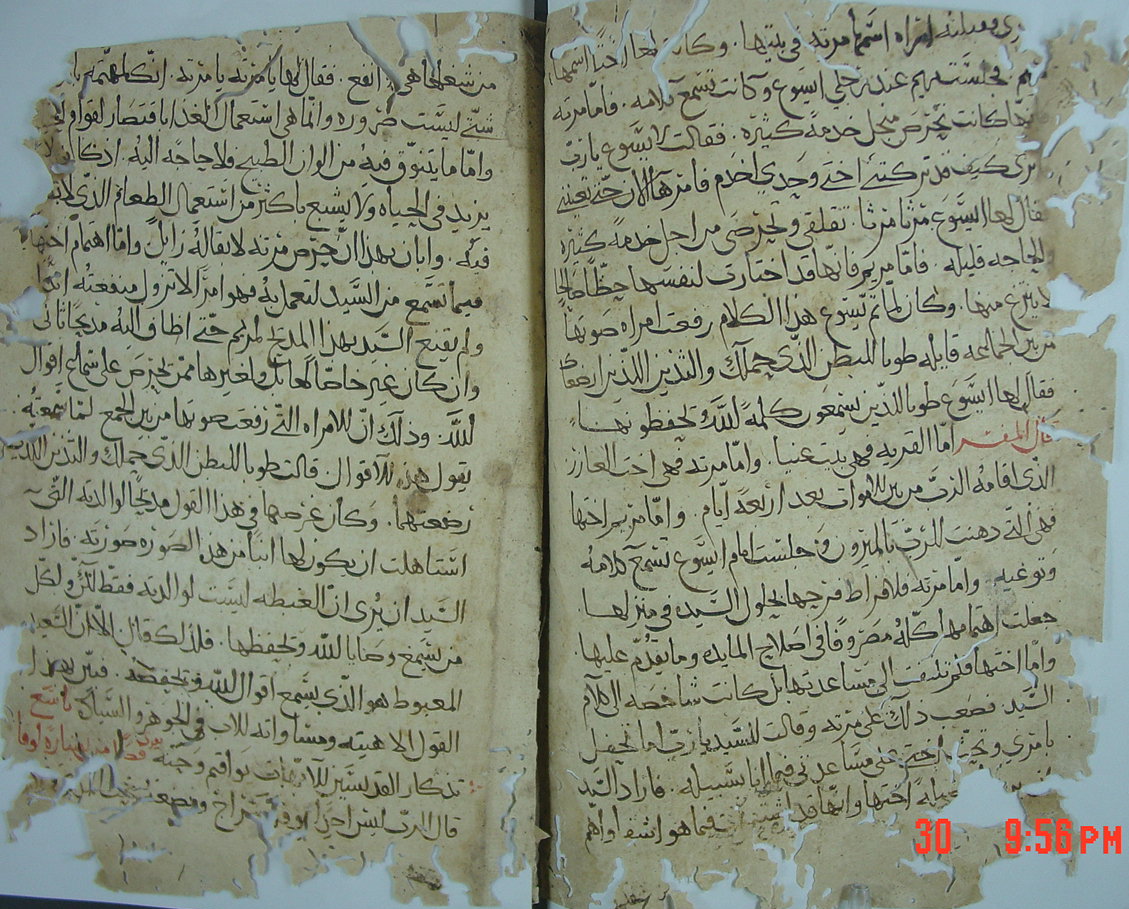 وقبلته امراه اسمها مرته في بيتها . وكانت لها اخت اسمها
مريم فجلست مريم عند رجلي ايسوع وكانت تسمع كلامه . فامّا مرته
كانت تحرص من اجل خدمة كثيرة . فقالت لايسوع يا ربّ
ترى كيف قد تركتني اختي وحدي اخدم فامرها الان حتى تعينني
فقال لها ايسوع مرثا مرثا . تقلقي وتحرصي من اجل خدمه كثيره
والحاجه قليله . فامّا مريم فانها قد اختارت لنفسها حظًا صالحا
لا ينزع منها . وكان لما تم يسوع هذا الكلام رفعت امراه صوتها
من بين الجماعه قايله طوبا للبطن الذي حملك والثديين اللذين ارضعاك
فقال لها ايسوع طوبا للذين يسمعون كلمة الله ويحفظونها
قال المفسر امّا القريه فهي بيت عنيا . وامّا مرته فهي اخت العازر
الذي اقامه الربّ من بين الاموات بعد اربعة ايّام . وامّا مريم اختها
فهي التي دهنت الربّ بالميرون وجلست امام ايسوع تسمع كلامه
وتوعيه . وامّا مرته فلافراط فرحها بحلول السيّد في منزلها
جعلت اهتمامها كلّه مصروفًا في اصلاح المايده وما يقدّم عليها
وامّا اختها فلم تلتفت الى مساعدتها بل كانت شاخصه الى كلام
السيّد . فصعب ذلك على مرته وقالت للسيّد يا ربّ اما تحفل
يا ترى وتحثّ اختي على مساعدتي فيما انا بسبيله . فاراد السيّد
اختها وانها قد فيما هو اشرف واهم
من شغلها هي انفع . فقال لها يا مرته يا مرته . انّ كلّما تهتمّي
شي ليست ضروره وانّما هي استعمال الغذا باقتصار لقوام
وامّا ما يتنوّق فيه من الوان الطبيخ فلا حاجه اليه . اذ كان لا
يزيد في الحياه ولا يشبع باكثر من استعمال الطعام الذي لا
فيه . وابان بهذا انّ حرص مرته لا بقا له زايل وامّا اهتمام اختها
فيما تسمع من السيّد لتعمل به فهو امرًا لا تزول منفعته ابدًا
ولم يقنع السيّد بهذا المدح لمريم حتى اضاف اليه مديحًا ثاني
وان كان غير خاصًّا لها بل ولغيرها ممن يحرص على سماع اقوال
الله وذلك انّ الامراه التي رفعت صوتها من بين الجمع لمّا سمعته
يقول هذه الاقوال . قالت طوبا للبطن الذي حملك والثديين اللذين
رضعتهما . وكان غرضها في هذا القول مديحًا لوالدته التي
استاهلت ان يكون لها ابنًا من هذه الصوره صورته . فاراد
السيّد ان يُرى انّ الغبطه ليست لوالدته فقط لكن ولكلّ
من يسمع وصايا الله ويحفظها . فلذلك قال الا انّ السعيد
المغبوط هو الذي يسمع اقوال الله ويحفظها . فبيّن بهذا
القول الاهيته ومشا وانه للاب في الجوهر والشباك
تذكار القديسين
قال الربّ ليس احدًا يوقد سراج ويضعه
30 9:56 PM